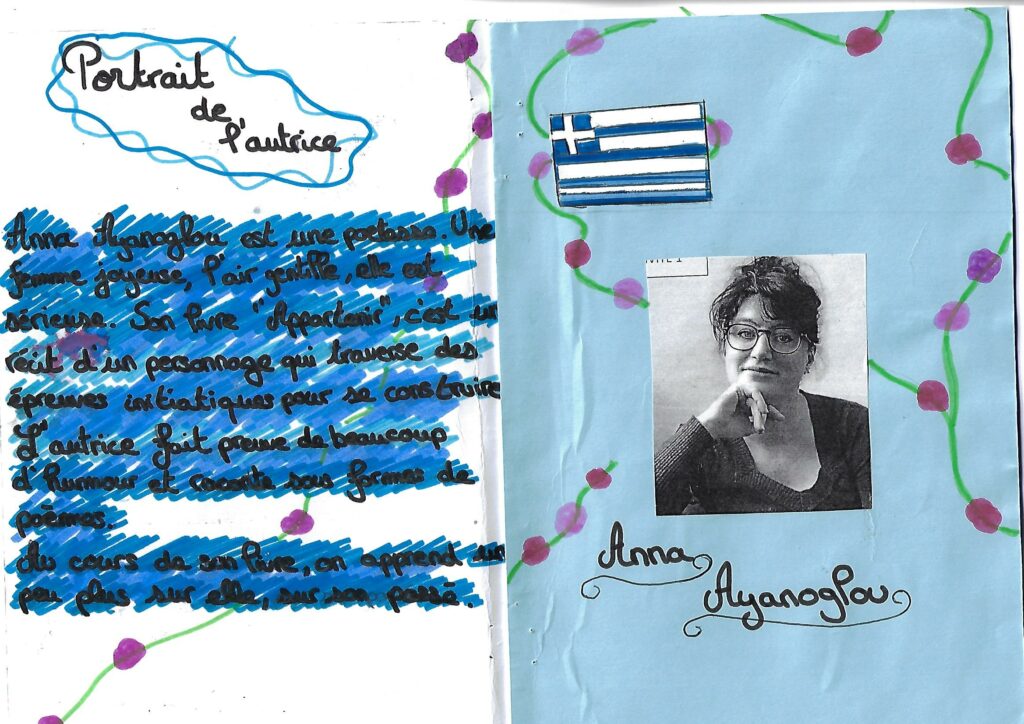 Portrait
de
l'autrice
Anna Ayanoglou est une poétesse. Une
femme joyeuse, l'air gentille, elle est
sérieuse. Son livre "Appartenir", c'est un
récit d'un personnage qui traverse des
épreuves initiatiques pour se construire
L'autrice fait preuve de beaucoup
d'humour et raconte sous formes de
poèmes.
Au cours de son livre, on apprend un
peu plus sur elle, sur son passé.
Anna
Ayanoglou